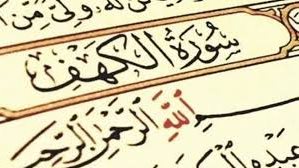 وَلِيٌّ مِّنَ
سُورَةُ الْكَهْفِ
ـسْمِ اللَّهِ الرَّحْمَٰنِ الرَّحِيمِ
عَبْدِهِ الْكِـ